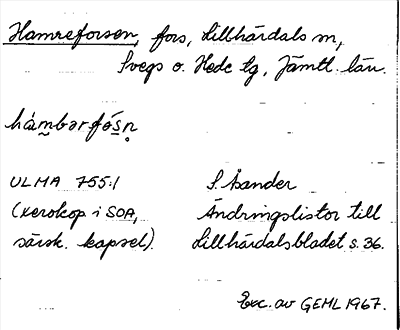 Hamreforsen, fors, Lillhärdals sn,
Svegs o. Hede tg, Jämtl. län.
håmbərfó̱s̱n̥
ULMA 755:1 S. Åander
(xerokop i SOA, Ändringslistor till
särsk. kapsel). Lillhärdalsbladet s. 36.
Exc. av GEML 1967.